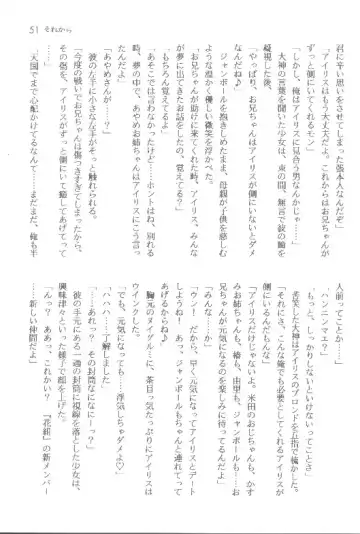 51 それから
君に辛い思いをさせてしまった張本人なんだぞ」
「アイリスはもう大丈夫だよ。これからはお兄ちゃんが
ずっと側にいてくれるモン」
「しかし、俺はアイリスに見合う男なんかじゃ……」
大神の言葉を聞いた少女は、束の間、無言で彼の瞳を
凝視した後、
「やっぱり、お兄ちゃんはアイリスが側にいないとダメ
なんだね♪」
ジャンポールを抱きしめたまま、母親が子供を慈しむ
ような温かく優しい微笑を浮かべた。
「お兄ちゃんが助けに来てくれた時、アイリス、みんな
が夢に出てきたお話をしたの、覚えてる?」
「もちろん覚えてるよ」
「あそこでは言わなかったけど……ホントはね、別れる
時、夢の中で、あやめお姉ちゃんはアイリスにこう言っ
たんだよ」
「あやめさんが……?」
彼の左手に小さな右手がそっと触れられる。
「今度の戦いでお兄ちゃんは傷つきすぎてしまったから、
その傷を、アイリスがずっと側にいて癒してあげてって」
「天国でまで心配かけてるなんて……まだまだ、俺も半
人前ってことか……」
「ハンニンマエ?」
「もっと、しっかりしないといけないってことさ」
苦笑した大神はアイリスのブロンドを五指で梳かした。
「それにさ、こんな俺でも必要としてくれるアイリスが
側にいるんだもんな」
「アイリスだけじゃないよ。米田のおじちゃんも、かす
みお姉ちゃんも、椿も、由里も、ジャンポールも……お
兄ちゃんが元気になるのを楽しみに待ってるんだよ」
「みんな……か」
「ウン! だから、早く元気になってアイリスとデート
しようね! あっ、ジャンポールもちゃんと連れてって
あげるからね」
胸元のヌイグルミに、茶目っ気たっぷりにアイリスは
ウインクした。
「でも、元気になっても……浮気しちゃダメよ♡」
「ハハハ……了解しました」
「……あれっ? その封筒なになにー?」
彼の手元にある一通の封筒に視線を落とした少女は、
興味津々といった様子で顔を上げた。
「んっ? ああっ、これかい? 『花組』の新メンバー
……新しい仲間だよ」